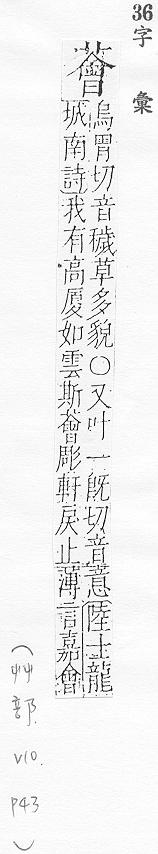 36
字彙
薈
烏胃切音穢草多貌○又叶一旣切音薏陸士龍
城南詩我有高厦如雲斯薈彫軒戾止薄言嘉會
(艸部. V10. P43)